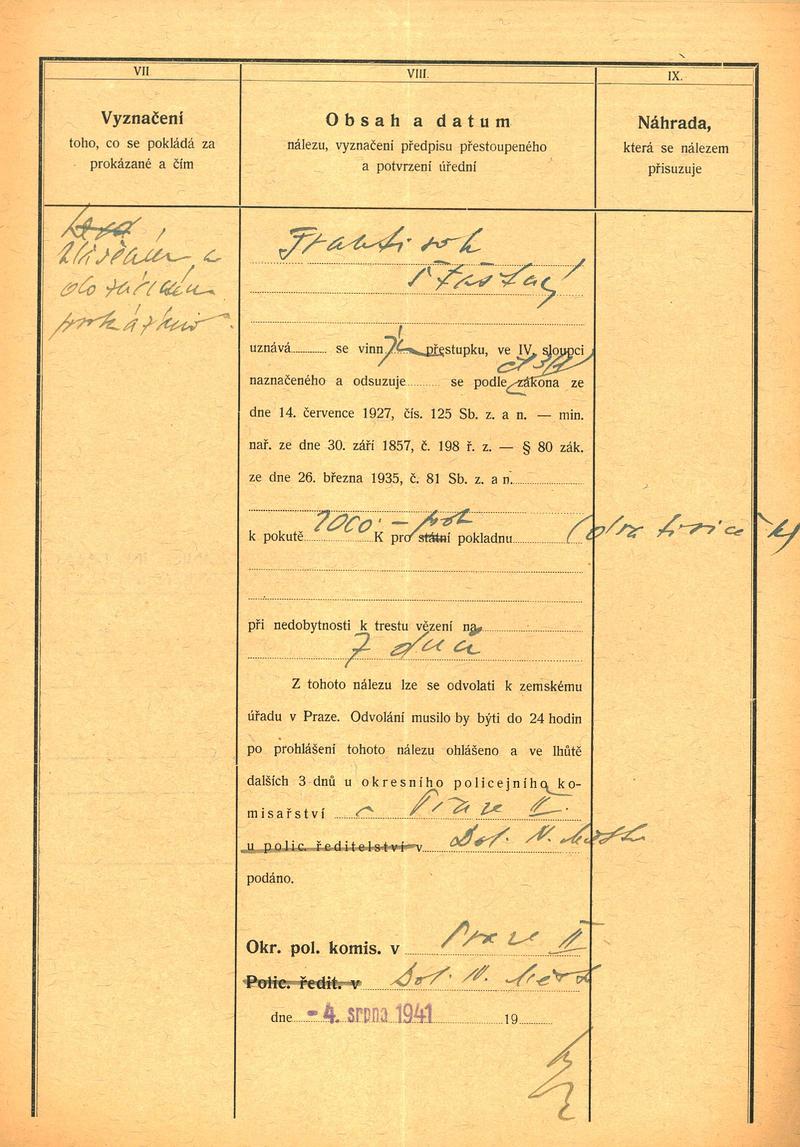 VII
VIII.
IX.
Vyznačení
toho, co se pokládá za
prokázané a čím
Obsah a datum
nálezu, vyznačení předpisu přestoupeného
a potvrzení úřední
Náhrada,
která se nálezem
přisuzuje
hlášením a
doznáním
prokázáno.
František
Šťastný
uznává se vinným přestupku, ve IV. sloupci
čl. 3/1
naznačeného a odsuzuje se podle zákona ze
dne 14. července 1927, čís. 125 Sb. z. a n. — min.
nař. ze dne 30. září 1857, č. 198 ř. z. — § 80 zák.
ze dne 26. března 1935, č. 81 Sb. z. a n.
k pokutě 2000·– K pro státní prot pokladnu (dva tisíce K)
při nedobytnosti k trestu vězení na
7 dnů
Z tohoto nálezu lze se odvolati k zemskému
úřadu v Praze. Odvolání musilo by býti do 24 hodin
po prohlášení tohoto nálezu ohlášeno a ve lhůtě
dalších 3 dnů u okresního policejního ko-
misařství v Praze II.
u polic. ředitelství v Dol. N. Město
podáno.
Okr. pol. komis. v Praze II
Polic. ředit. v Dol. N. Město
dne - 4. srpna 1941 19